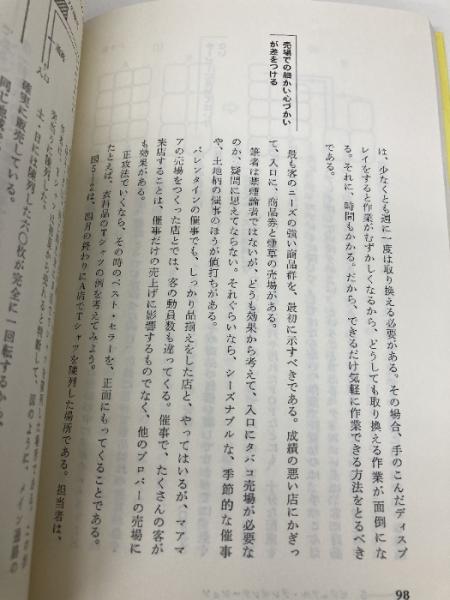 は、少なくとも週に一度は取り換える必要がある。その場合、手のこんだディスプ
レイをすると作業がむずかしくなるから、どうしても取り換える作業が面倒にな
る。それに、時間もかかる。だから、できるだけ気軽に作業できる方法をとるべき
である。
売場での細かい心づかい
が差をつける
最も客のニーズの強い商品群を、最初に示すべきである。成績の悪い店にかぎっ
て、入口に、商品券と煙草の売場がある。
筆者は嫌煙論者ではないが、どうも効果から考えて、入口にタバコ売場が必要な
のか、疑問に思えてならない。それぐらいなら、シーズナブルな、季節的な催事
や、土地柄の催事のほうが値打ちがある。
バレンタインの催事でも、しっかり品揃えをした店と、やってはいるが、マアマ
アの売場をつくった店とでは、客の動員数も違ってくる。催事で、たくさんの客が
来店することは、催事だけの売上げに影響するものでなく、他のプロパーの売場に
も効果がある。
正攻法でいくなら、その時のベスト・セラーを、正面にもってくることである。
たとえば、衣料品のTシャツの例を考えてみよう。
図5-12は、四月の終わりにA店でTシャツを陳列した場所である。担当者は、
98
入口
確実に販売している。
土、日には陳列した六〇枚が完全に一回転するから、